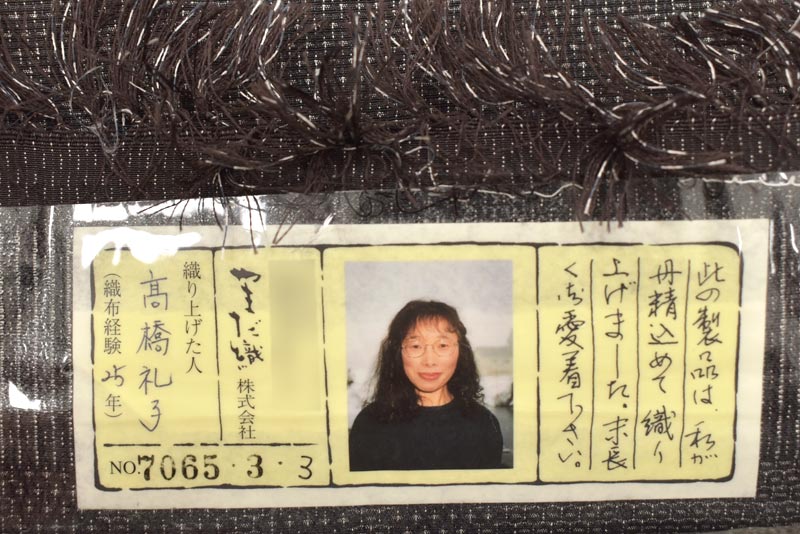 此の製品は、私が
丹精込めて織り
上げました。末長
くご愛着下さい。
やまだ織
株式会社
織り上げた人
高橋礼子
(織布経験25年)
NO.7065・3・3